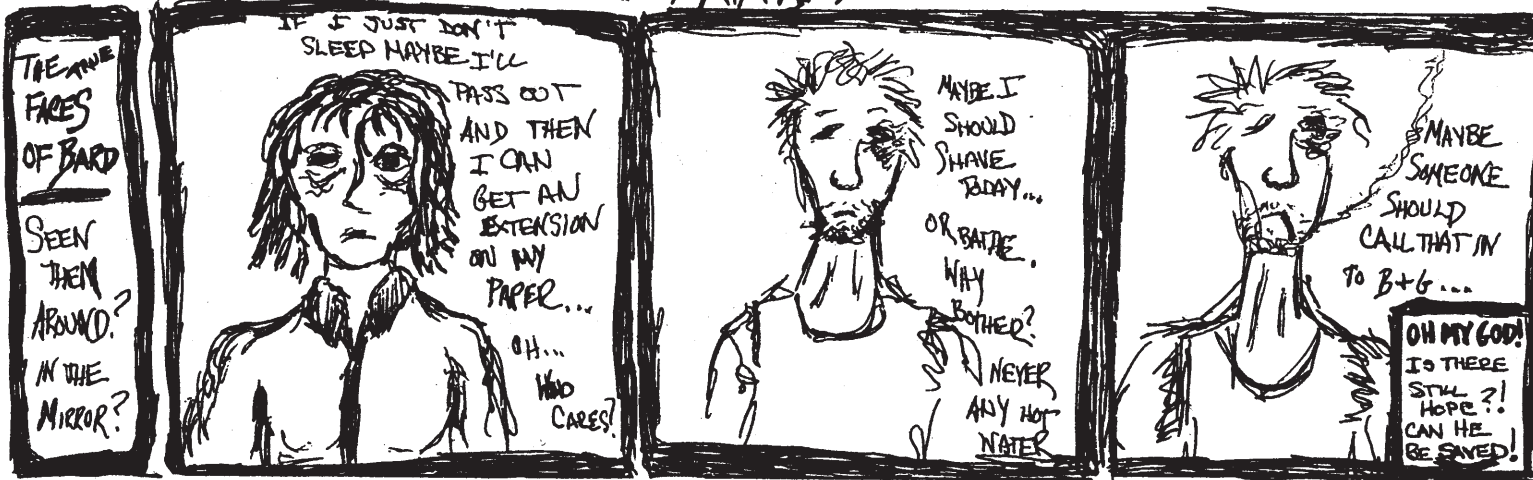 THE TRUE
FACES
OF BARD
SEEN
THEM
AROUND?
IN THE
MIRROR?
IF I JUST DON'T
SLEEP MAYBE I'LL
PASS OUT
AND THEN
I CAN
GET AN
EXTENSION
ON MY
PAPER...
OH...
WHO
CARES?
MAYBE I
SHOULD
SHAVE
TODAY...
OR BATHE.
WHY
BOTHED?
NEVER
ANY HOT
WATER
MAYBE
SOMEONE
SHOULD
CALL THAT IN
TO B+G...
OH MY GOD!
IS THERE
STILL
HOPE?!
CAN HE
BE SAVED!